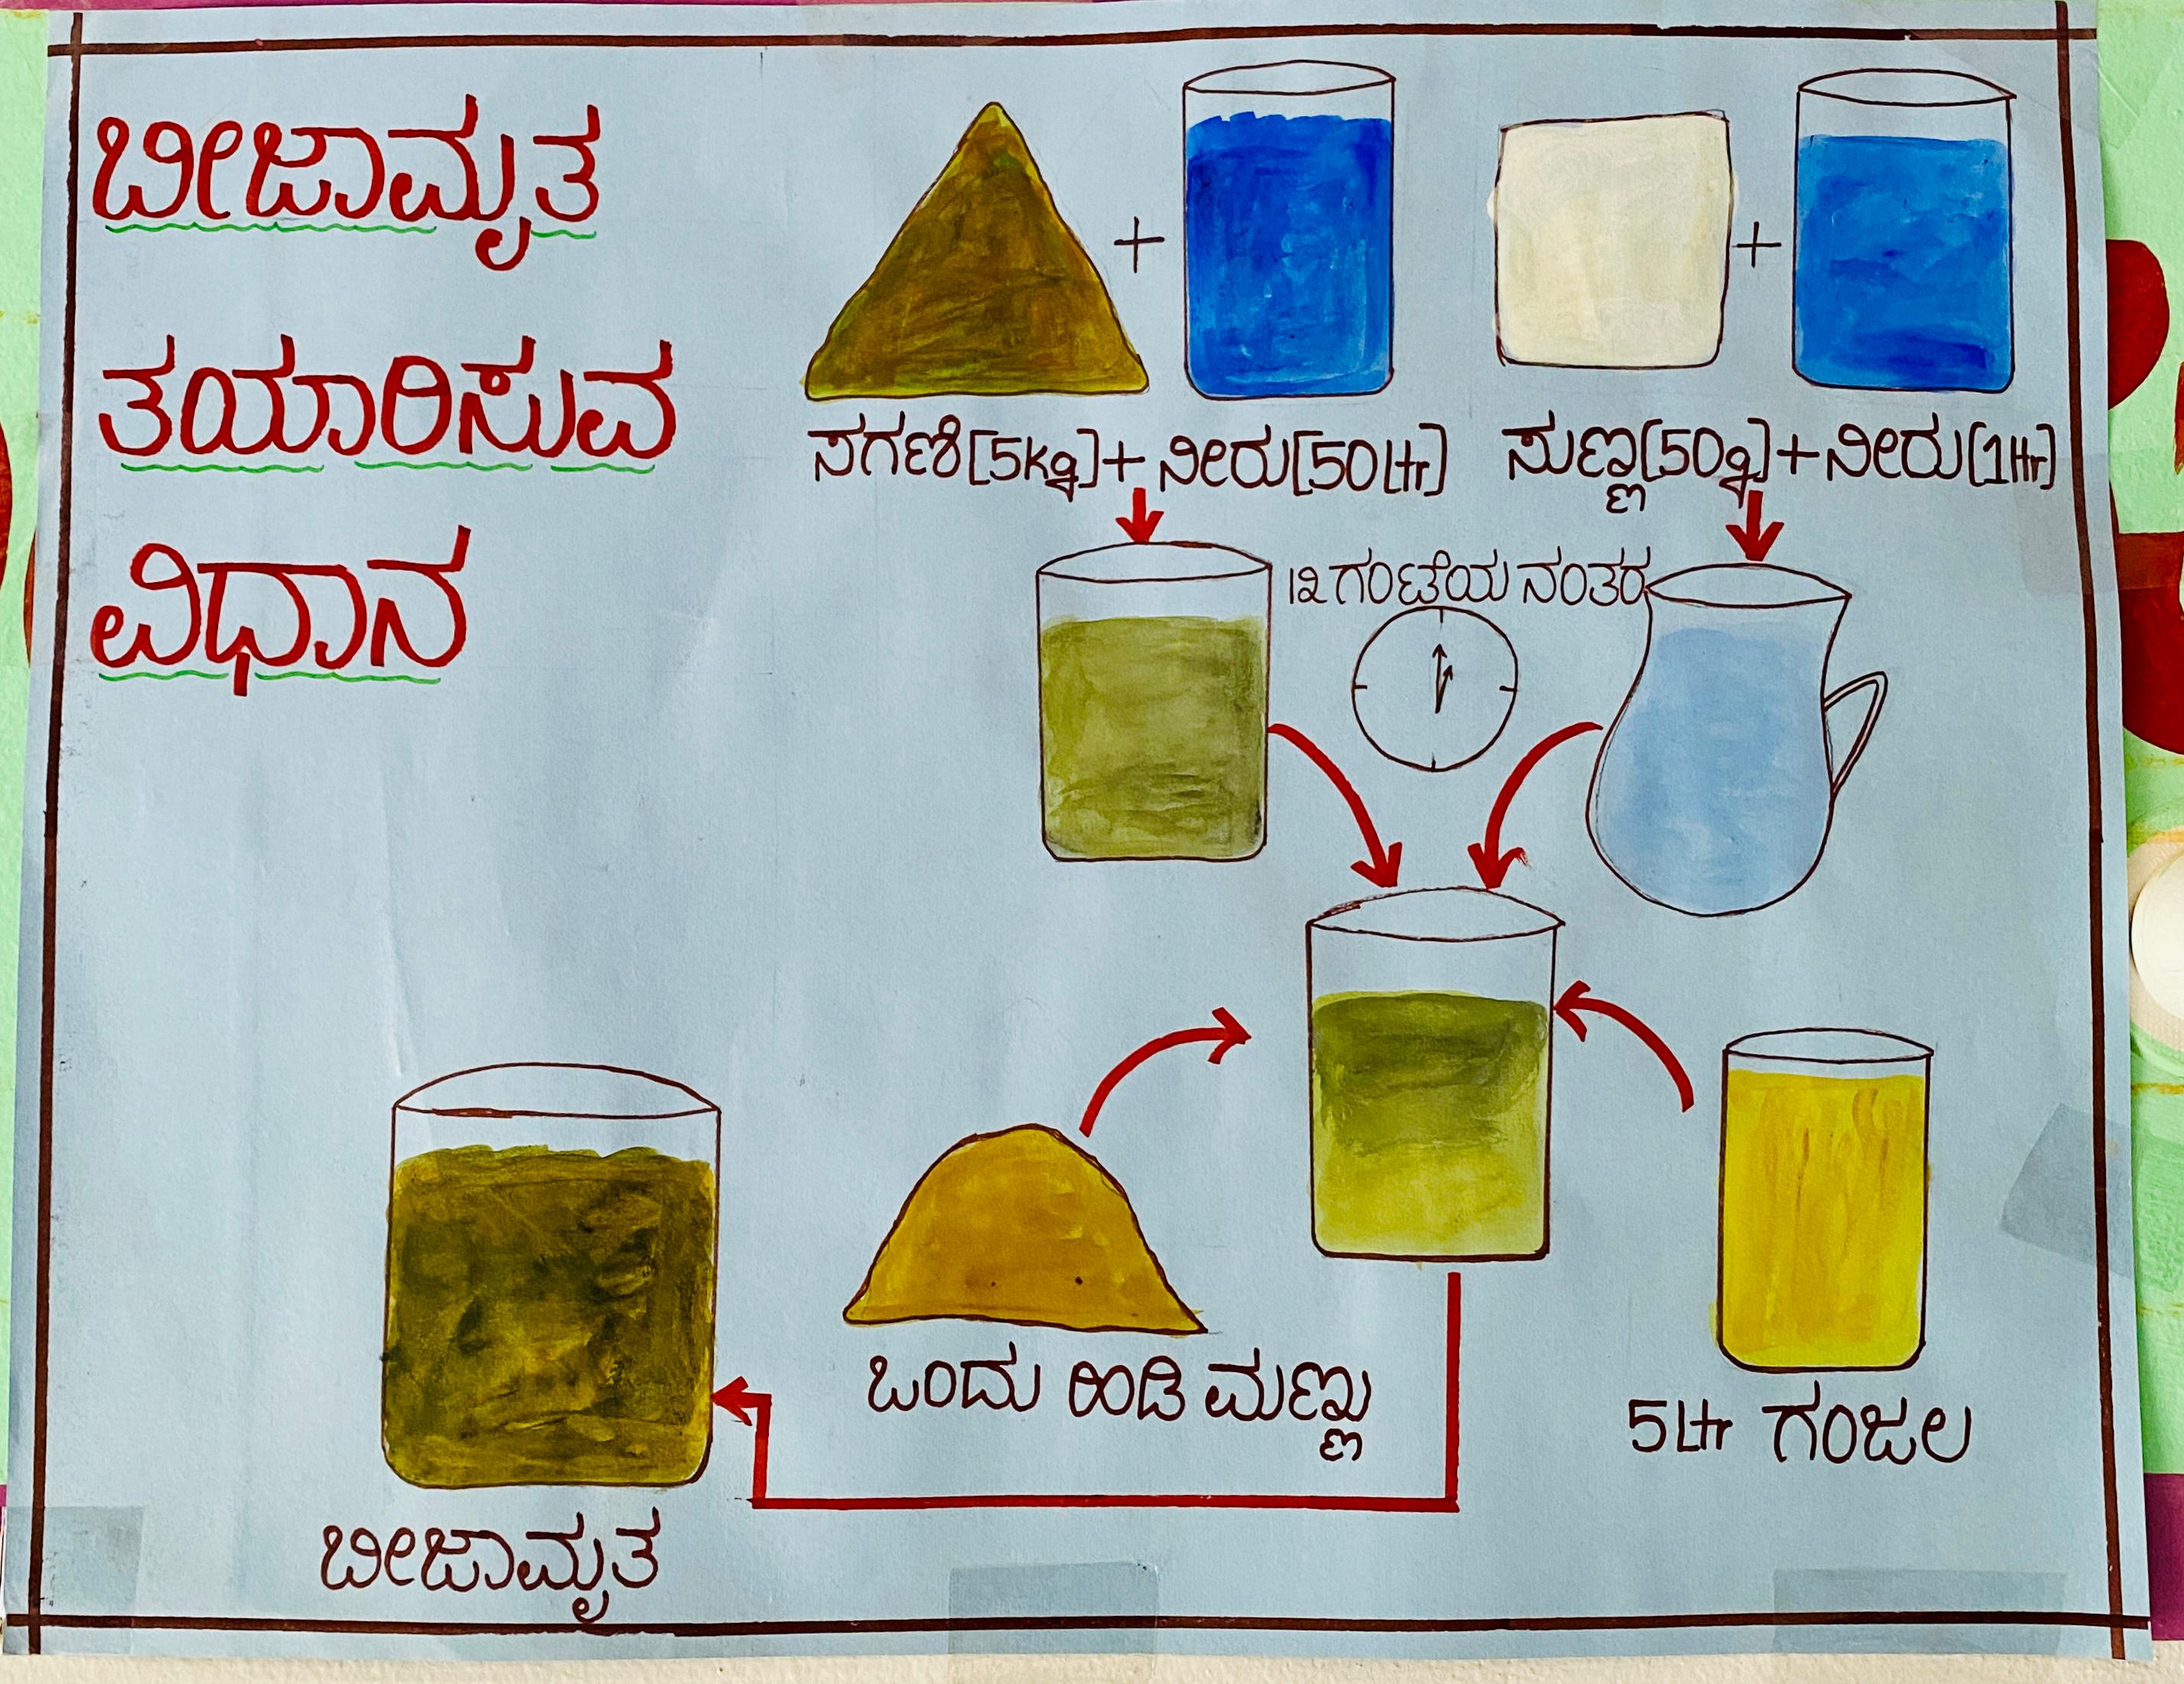 ಬೀಜಾಮೃತ
ತಯಾರಿಸುವ
ವಿಧಾನ
ಸಗಣಿ[5kg]+ ನೀರು[50Ltr]
ಸುಣ್ಣ[50g]+ನೀರು[1ltr]
೧೩ ಗಂಟೆಯ ನಂತರ
ಒಂದು ಹಿಡಿ ಮಣ್ಣು
5Ltr ಗಂಜಲ
ಬೀಜಾಮೃತ